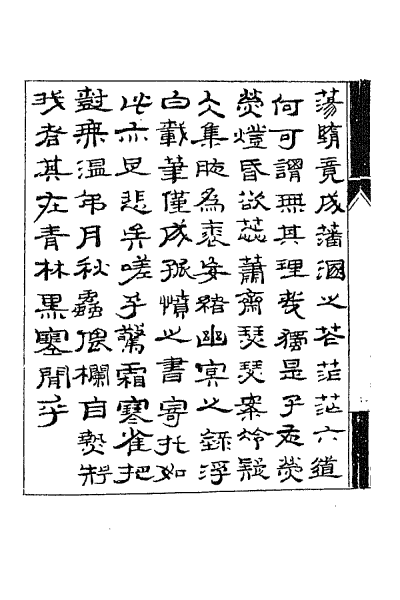 蕩墮竟成藩溷之花茫茫六道
何可謂無其理哉獨是子夜熒
熒燈昏欲蕊蕭齋瑟瑟案冷疑
冰集腋為裘妄續幽冥之錄浮
白載筆僅成孤憤之書寄托如
此亦足悲矣嗟乎驚霜寒雀抱
樹無溫弔月秋蟲偎欄自熱知
我者其在青林黑塞間乎